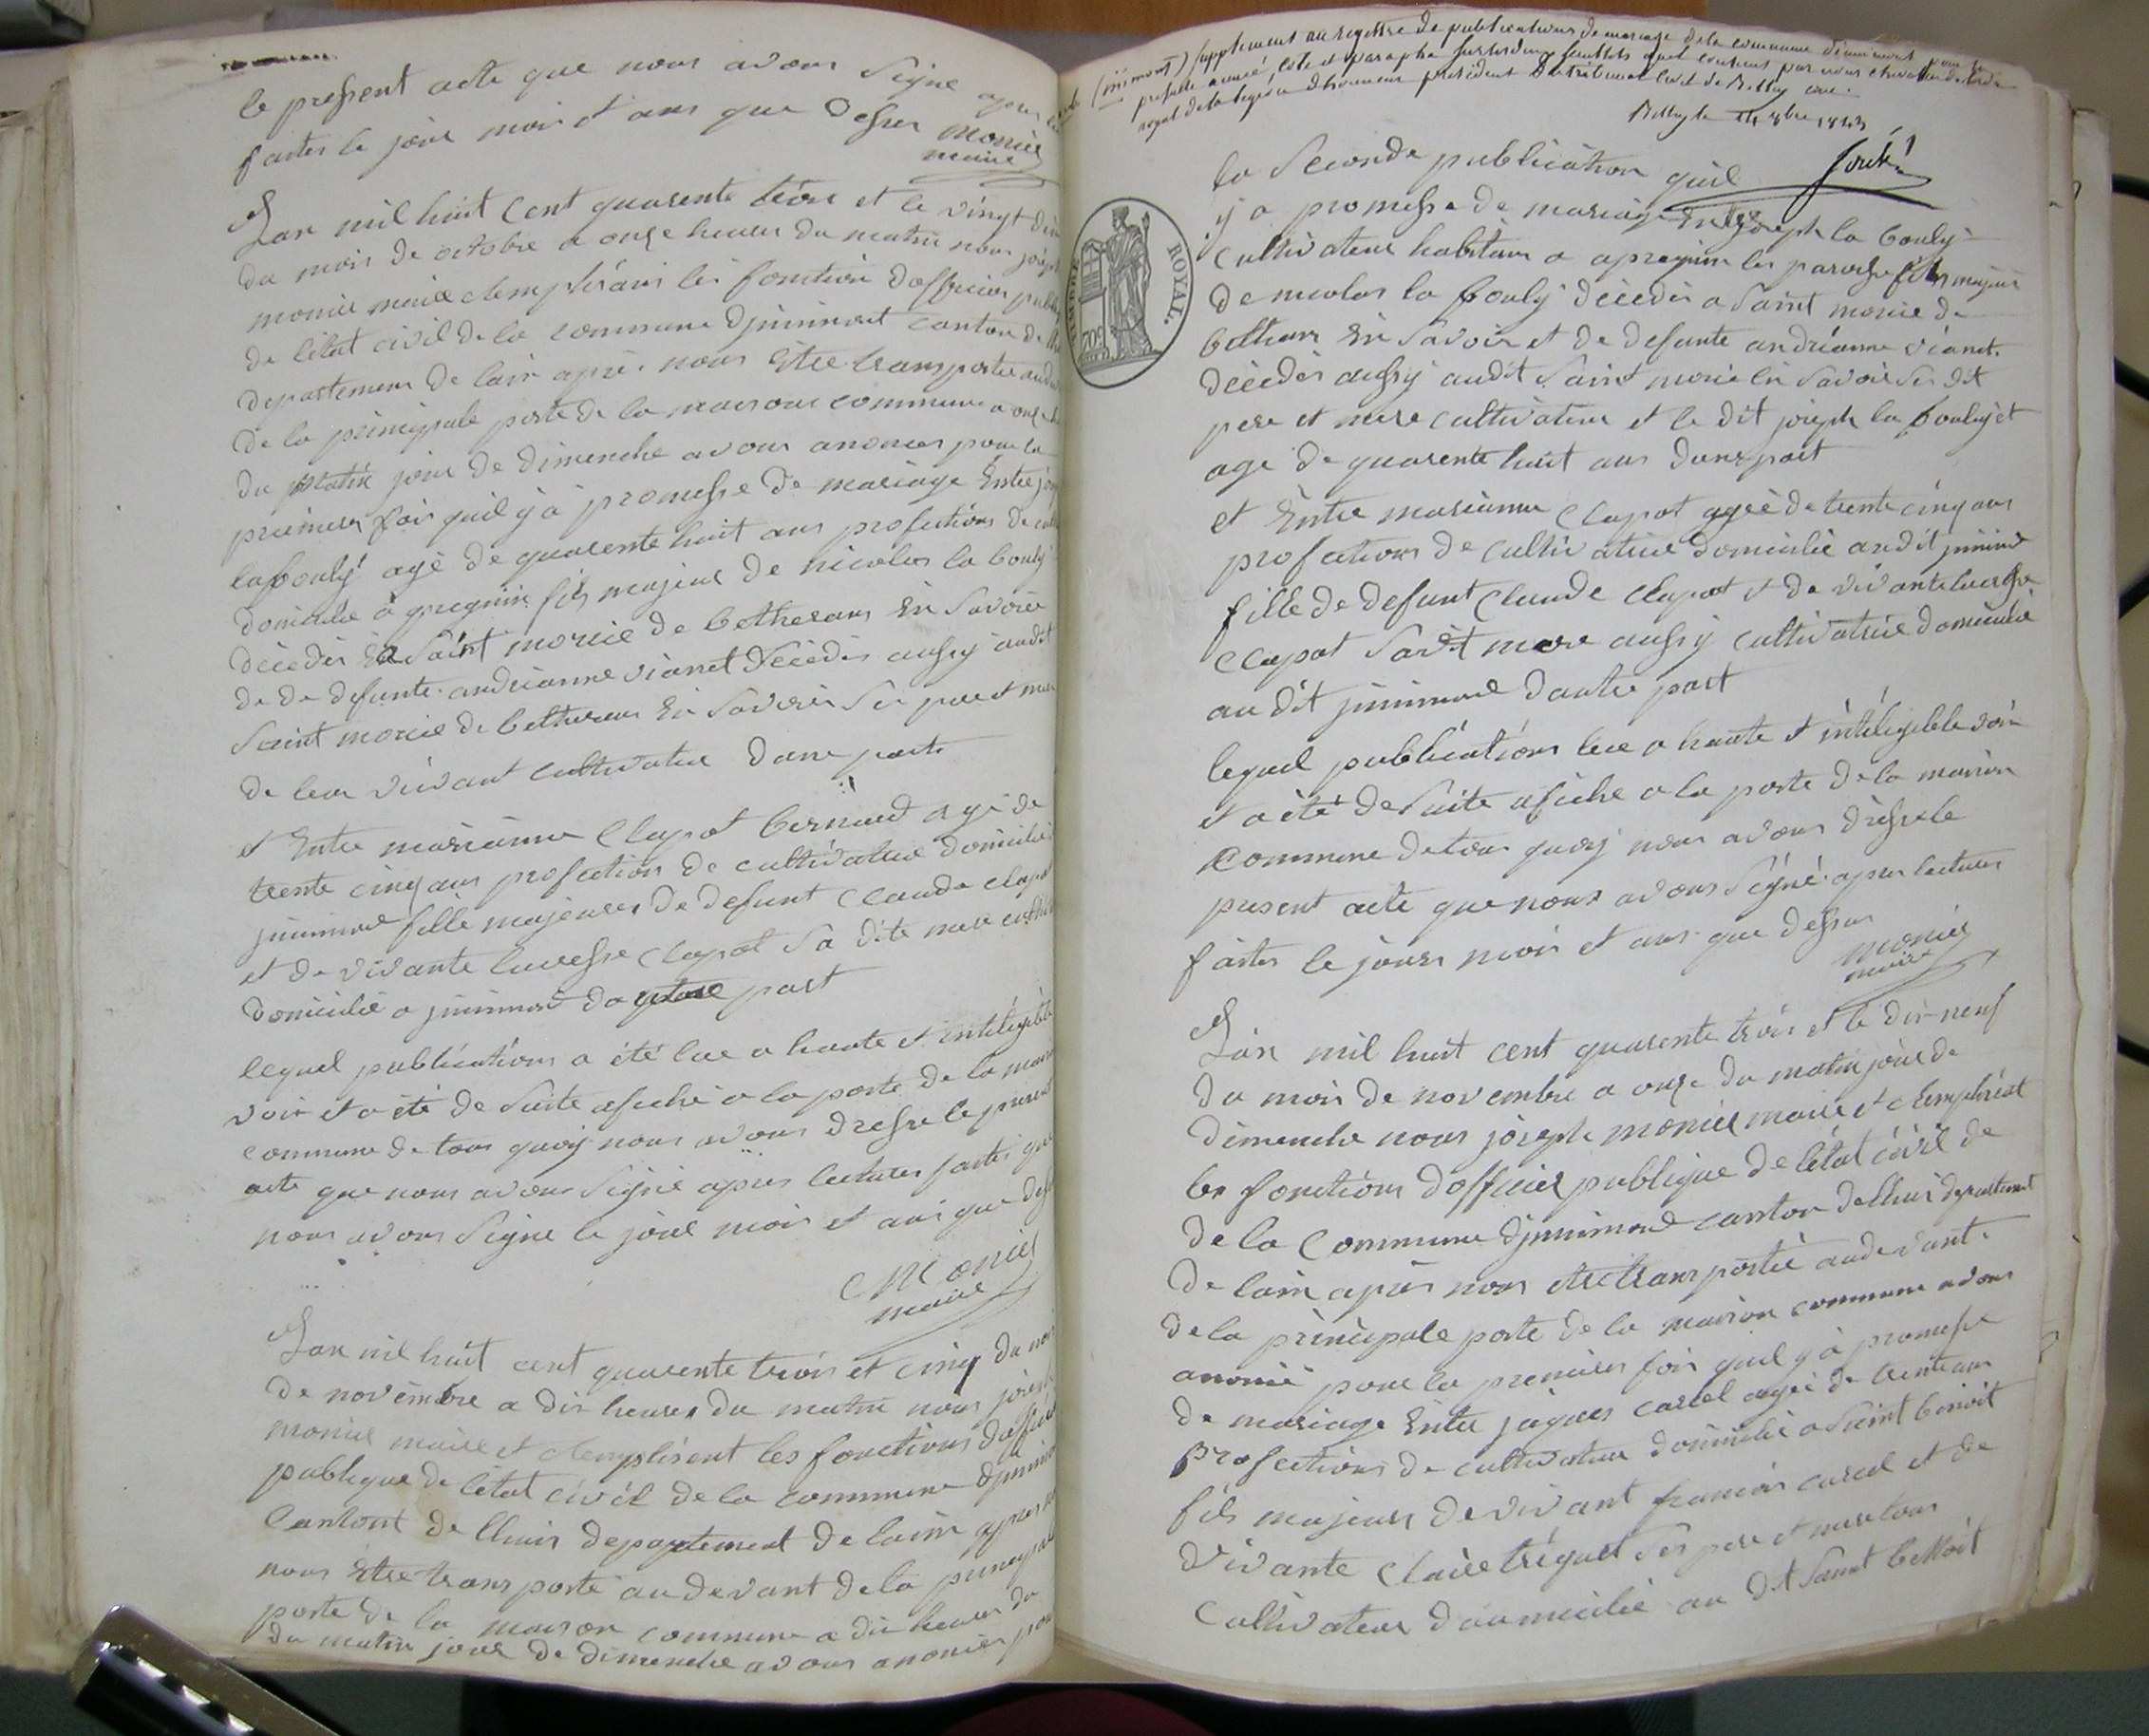 le present acte que nous avons Signé apres
faites le jour mois et ans que Dessus monier
maire
Lan mil huit Cent quarente trois et le vingt
du mois de octobre a onze heures du matin nous
monier maire les fonction Dofficier
de létat civil de la commune Djnnimont canton de
departement de lain après nous Etre transportes
de la principale porte de la maisons commune a
du Matin jour de Dimenche avons anoncer pour la
premiere fois quil y à promesse de mariage Entre
la bouly agé de quarente huit ans profections de
domicilié à fils majeur de nicolas la bouly
décédes En Saint morice de betherans En Savoie
de De defunte andrianne vianet décédés aussy audit
Saint morice de betherans En Savoie Ses pere et mere
de leur vivant cultivateur Dune parts
et Entre marianne Clapot bernard agé de
trente cinq ans profection de cultivatrice domicilié
jnnimont fille majeures de defunt Claude clapot
et de vivante lucresse Clapot Sa dite mere
domicilié a jnnimont part
lequel publications a été lue a haute et intéligible
voix et a été de Suite afiché a la porte de la
commune de tous quoy nous avons dressé le present
acte que nous avons Signé apres lectures faites que
nous avons Signe le jour mois et ans que
Monier
maire
Lan mil huit cent quarente trois et cinq du
de novembre a dix heures du matin nous
monier maire et les fonctions
publique de létat civil de la commune
Cantont de lhuis departement de lain apres
nous Etre transporté au devant de la
porte de la maison commune a dix heures du
du matin jour de Dimenche avons anoncer
Supplement au registre de publications de mariage de la commune pour la
presente année, coté et paraphé par nous chevalier de lordre
royal de la legion dhonneur président du tribunal civil de Belley
Belley le 14 8bre 1843
la Seconde publication quil
y a promesse de mariage Entre joseph la bouly
Cultivateur habitant a fils majeur
de nicolas la bouly décédés a Saint morice de
betherans En Savoie et de defunte andrianne vianet
décédés aussy audit Saint morice En Savoie Ses dit
pere et mere cultivateur et le dit joseph la bouly et
agé de quarente huit ans Dune part
et Entre marianne Clapot agée de trente cinq ans
profections de cultivatrice domicilié audit
fille de defunt Claude Clapot et de vivante lucresse
Clapot mere aussy cultivatrice domicilié
au dit jnnimond Dautre part
lequel publications lue a haute et intéligible voix
et a été de Suite afiché a la porte de la maison
commune de tous quoy nous avons dressé le
present acte que nous avons Signé apres lectures
faites le jours mois et ans que dessus
monier
maire
Lan mil huit cent quarente trois et le dix-neuf
du mois de novembre a onze du matin jour de
dimenche nous joseph monier maire et
les fonctions Dofficier publique de létat civil de
de la Commune Djnnimond canton de lhuis departement
de lain après nous etre transportée au devant
de la principale porte de la maison commune avons
anoncé pour la premiere fois quil y à promesse
de mariage Entre jaques carrel agée de trente ans
profections de cultivateur domicilié a Saint benoit
fils majeurs de vivant francois carrel et de
vivante Claire tréquet Ses pere et mere tous
Cultivateur doumicilié au dit Saint benoit